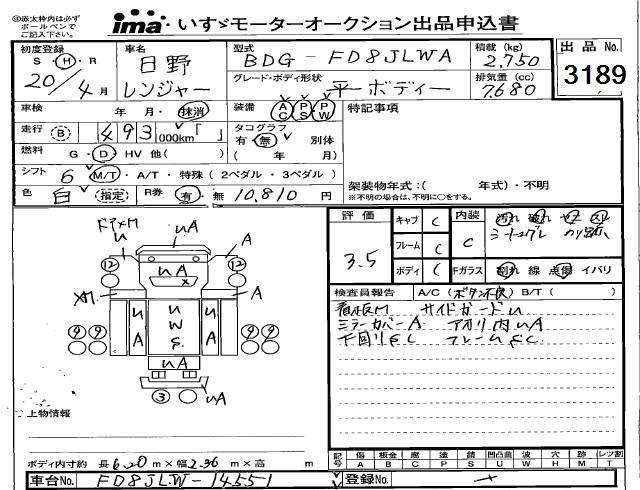 ◎太枠内は必ず
ボールペンで
ご記入下さい。
ima いすゞモーターオークション出品申込書
初度登録
S・H・R
20/4月
車名
日野
レンジャー
型式
BDG-FD8JLWA
グレード・ボディ形状
平ボディー
積載 (kg)
2,750
排気量 (cc)
7680
出品 No.
3189
車検
年 月・抹消
装備 AC PS PW
特記事項
走行 B 493 000km「 」
タコグラフ
有・無 別体
( 年 月)
燃料 G・D・HV 他( )
シフト 6 M/T・A/T・特殊(2ペダル・3ペダル)
色 白 (指定) R券 有・無 10,810 円
架装物年式:( 年式)・不明
※不明の場合は、不明に○をする。
評価
3.5
キャブ C
フレーム C
ボディ C
内装 C
汚れ 破れ
Fガラス 割れ 線 点傷 イバリ
検査員報告 A/C (ボタン不良) B/T ( )
看板M サイドガードU
ミラーカバーA アオリ内UA
下回りSC フレームSC
ドアメM
U
UA
A
12
12
UA
X
A
U
A
U
W
S
U
A
9
9
9
9
UA
3
UA
上物情報
ボディ内寸約 長 6.20 m×幅 2.36 m×高 m
記号 傷 A 板金 B 腐 C 塗 P 錆 S 凹凸曲 U 波 W 穴 H 跡 M レツ割 T
車台No. FD8JLW-14551
登録No.